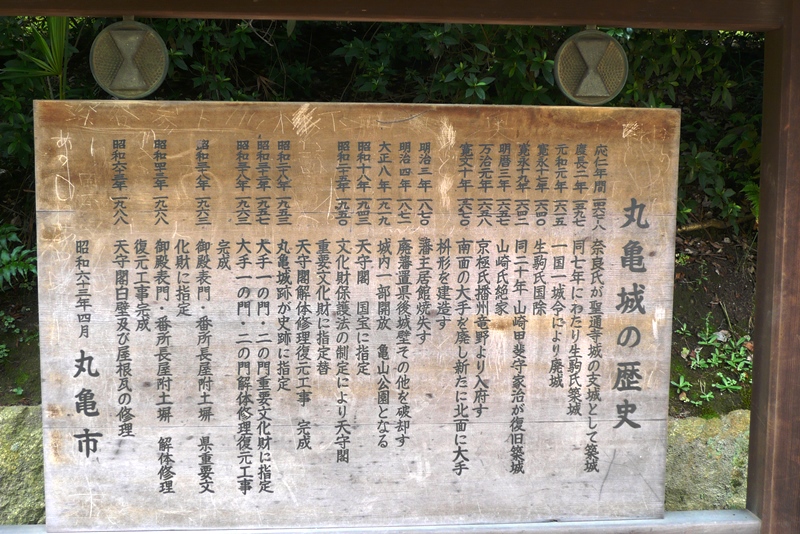 丸亀城の歴史
応仁年間 一四六七〜八 奈良氏が聖通寺城の支城として築城
慶長二年 一五九七 同七年にわたり生駒氏築城
元和元年 一六一五 一国一城令により廃城
寛永十七年 一六四〇 生駒氏国除
寛永十九年 一六四二 同二十年 山崎甲斐守家治が復旧築城
明暦三年 一六五七 山崎氏絶家
万治元年 一六五八 京極氏播州竜野より入府す
寛文十年 一六七〇 南面の大手を廃し新たに北面に大手
枡形を建造す
明治三年 一八七〇 藩主居館焼失す
明治四年 一八七一 廃藩置県後城壁その他を破却す
大正八年 一九一九 城内一部開放 亀山公園となる
昭和十八年 一九四三 天守閣 国宝に指定
昭和二十五年 一九五〇 文化財保護法の制定により天守閣
重要文化財に指定替
天守閣解体修理復元工事 完成
昭和二十八年 一九五三 丸亀城跡が史跡に指定
昭和三十二年 一九五七 大手一の門・二の門重要文化財に指定
昭和三十八年 一九六三 大手一の門・二の門解体修理復元工事
完成
昭和三十八年 一九六三 御殿表門・番所長屋附土塀 県重要文
化財に指定
昭和四十三年 一九六八 御殿表門・番所長屋附土塀 解体修理
復元工事完成
昭和六十三年 一九八八 天守閣白壁及び屋根瓦の修理
昭和六十三年四月 丸亀市